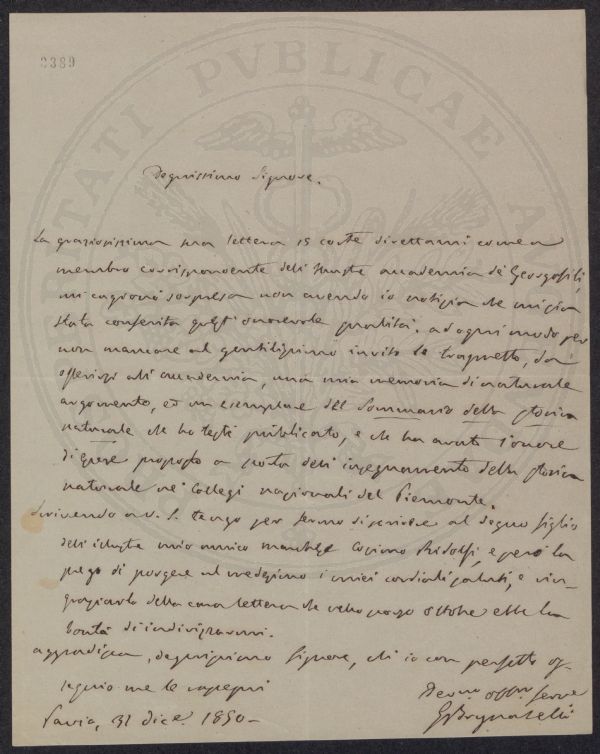 2389
Degnissimo Signore.
La graziosissima sua lettera 15 corte direttami come a
membro corrispondente dell' accademia de' Georgofili,
mi cagionò sorpresa non avendo io notizia che mi sia
stata conferita onorevole qualità. ad ogni modo per
non mancare al gentilissimo invito le trasmetto, da
all' accademia, una mia memoria di naturale
argomento, ed un esemplare del Sommario della storia
naturale che ho testè pubblicato, e che ha avuto l'onore
di essere proposto a dell' insegnamento della storia
naturale ne' Collegi nazionali del Piemonte.
Scrivendo a V. S. tengo per fermo di scrivere al degno figlio
dell' mio amico marchese Cosimo Ridolfi, e però la
prego di porgere al medesimo i miei cordiali saluti, e rin-
graziarlo della cara lettera che ottobre ebbe la
bontà di indirizzarmi.
aggradisca, degnissimo Signore, ch' io con perfetto os-
sequio me le rassegni
Pavia, 31 dice. 1850-
Devmo servo
G Brugnatelli
PVBLICAE